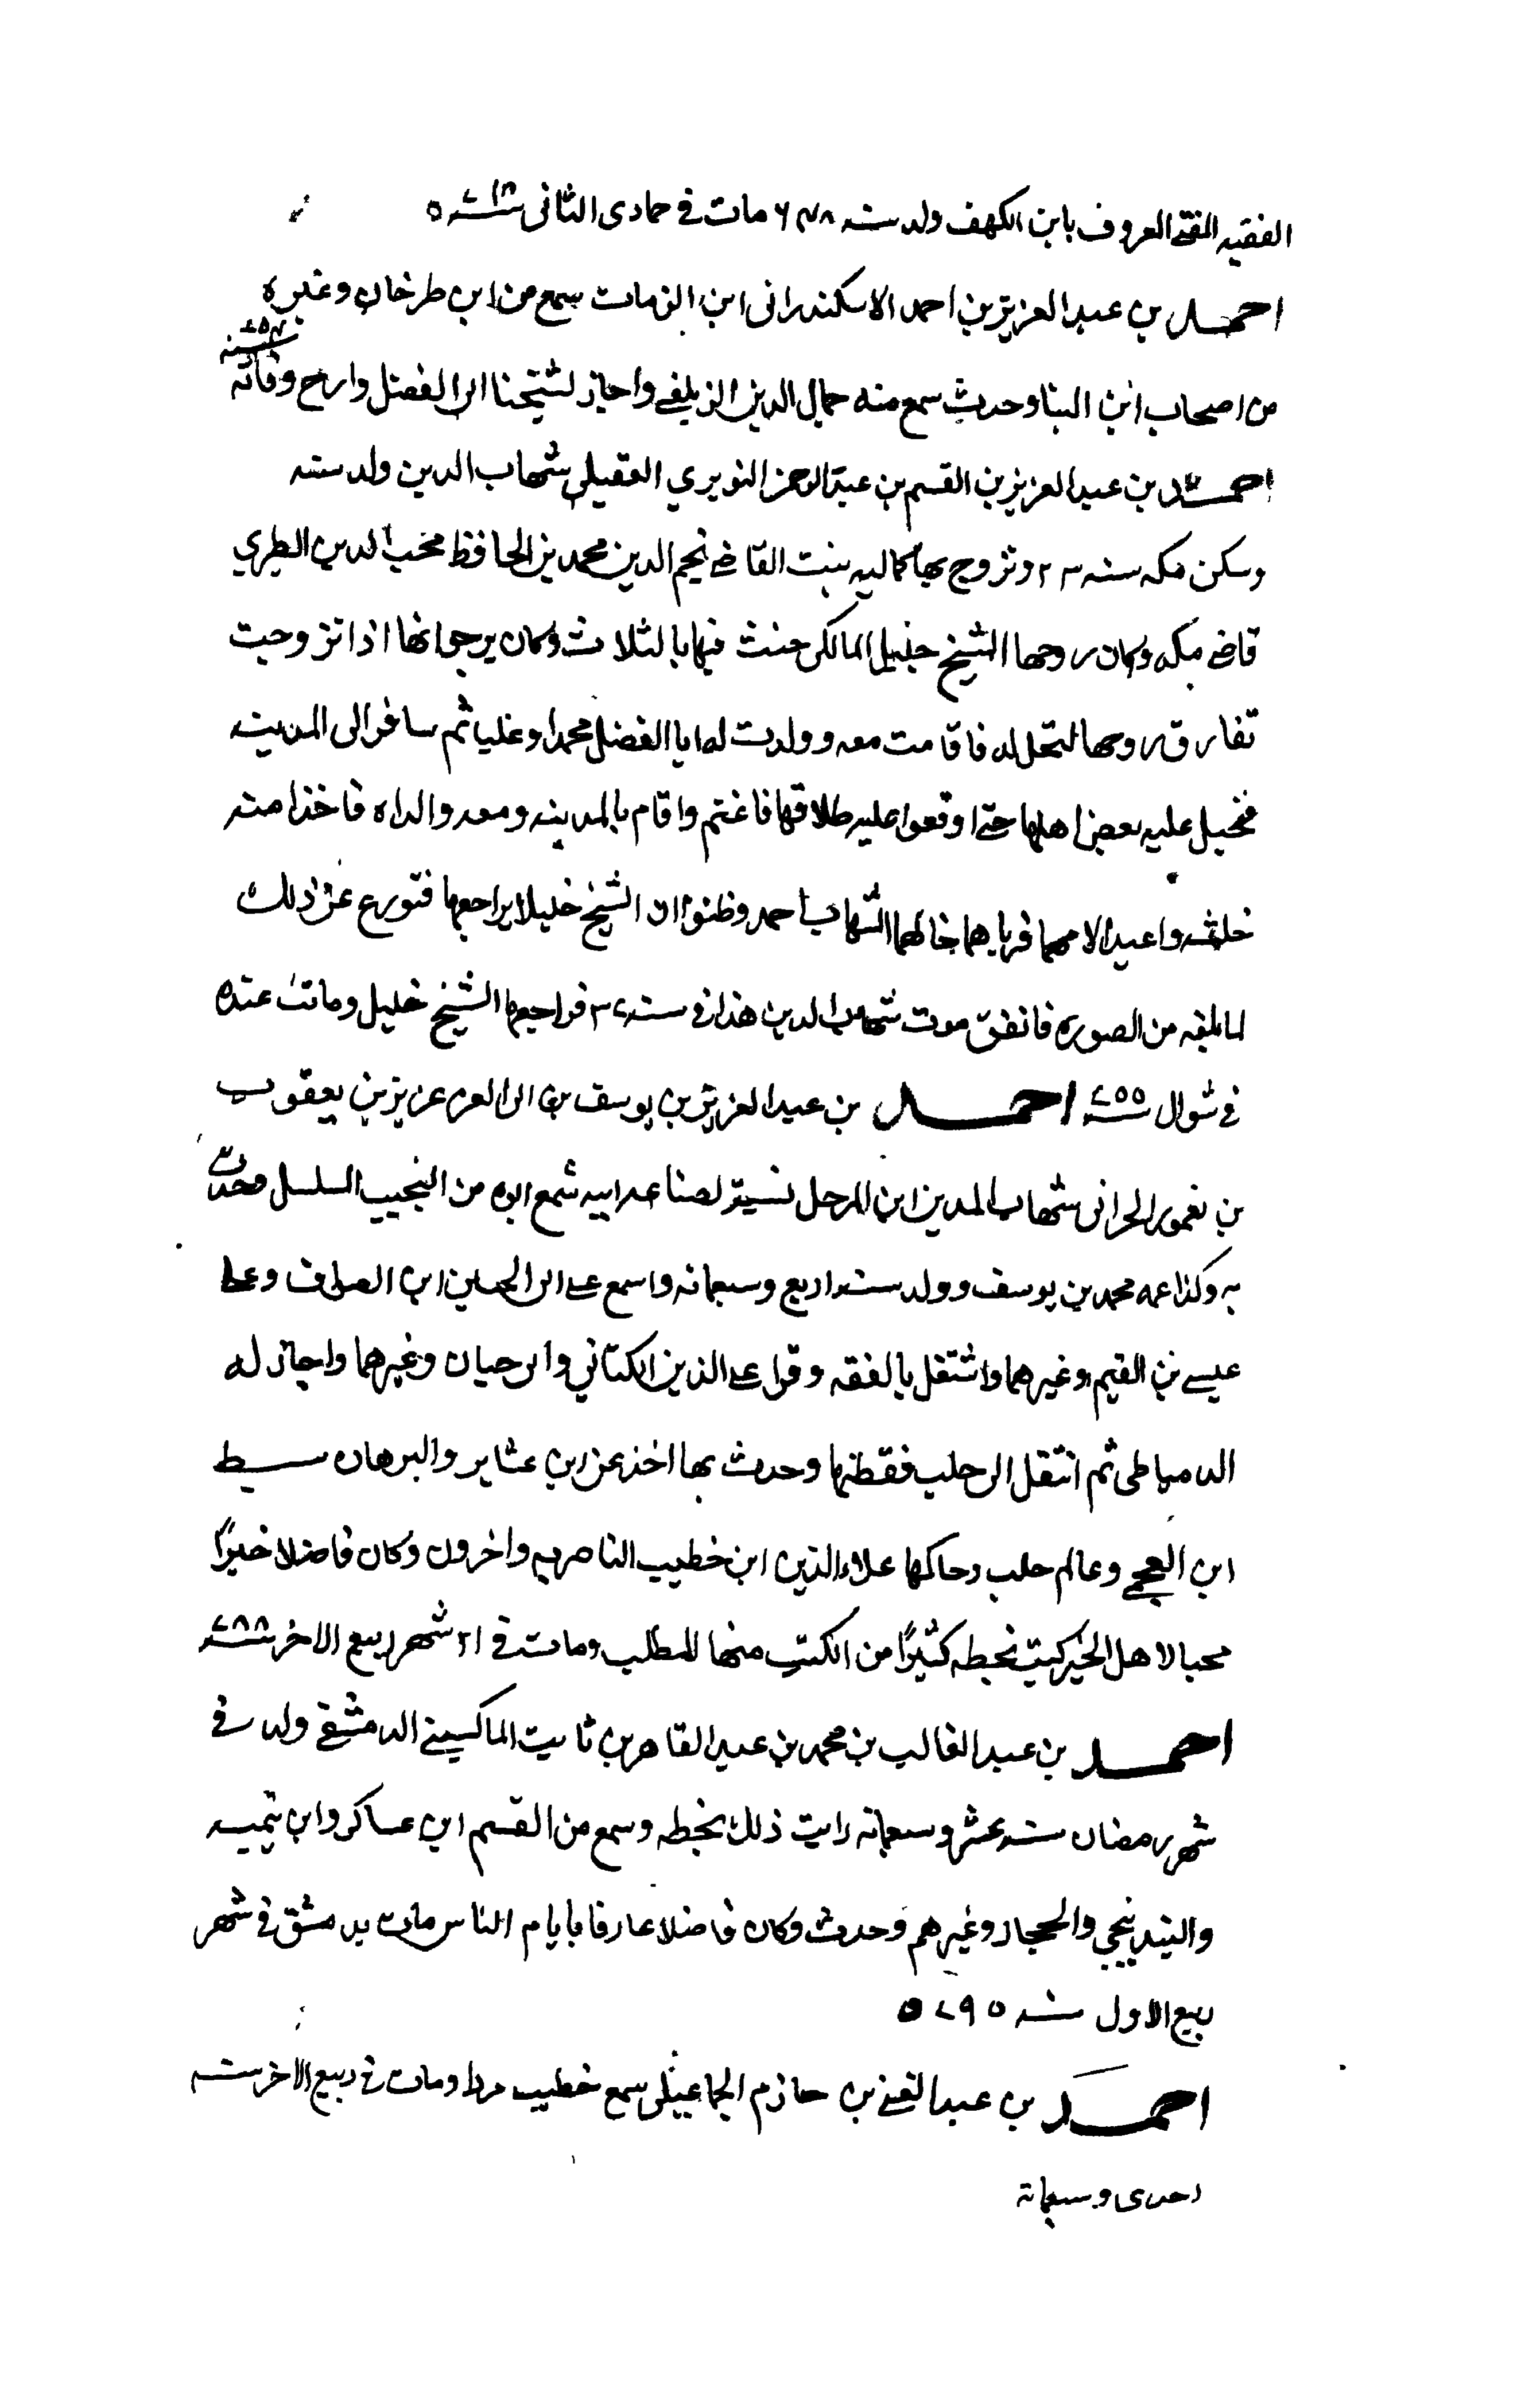 الفقيه المفتى المعروف بابن الكهف ولد سنه ٦٣٨ مات فى جمادى الثانى سنة
احمد بن عبد العزيز بن احمد الاسكندرانى ابن الزمات سمع من ابن طرخان وغيره
من اصحاب ابن البنا وحدث سمع منه جمال الدين الزيلعى واجاز لشيخنا ابى الفضل وارخ وفاته سنة
احمد بن عبد العزيز بن القسم بن عبد الرحمن النويري العقيلى شهاب الدين ولد سنه
وسكن مكه سنه ٢٣ وتزوج بها كماليه بنت القاضى نجم الدين محمد بن الحافظ محب الدين الطبري
قاضى مكه وكان زوجها الشيخ خليل المالكى حنث فيها بالثلاث وكان يرجى انها اذا تزوجت
تفارق زوجها لتحل له فاقامت معه وولدت له ابا الفضل محمدا وعليا ثم سافر الى المدينه
فتحيل عليه بعض اهلها حتى اوقعوا عليه طلاقها فاغتم واقام بالمدينه ومعه ولداه فاخذا منه
خلسه واعيدا لامهما فرباهما خالهما الشهاب احمد وظنوا ان الشيخ خليلا يراجعها فتورع عن ذلك
لما بلغه من الصوره فاتفق موت شهاب الدين هذا فى سنه ٣٧ فراجعها الشيخ خليل وماتت عنده
فى شوال سنه ٧٥٥ احمد بن عبد العزيز بن يوسف بن ابى العز عزيز بن يعقوب
بن يغمور الحرانى شهاب الدين ابن المرحل نسبة لصناعه ابيه سمع ابوه من النجيب المسلسل وحدث
به وكذا عمه محمد بن يوسف وولد سنه اربع وسبعمائه واسمع على ابى الحسن ابن الصواف وعلى
عيسى بن القيم وغيرهما واشتغل بالفقه وقرا على الزين الكتاني وابى حيان وغيرهما واجاز له
الدمياطى ثم انتقل الى حلب فقطنها وحدث بها اخذ عن ابن عشاير والبرهان سبط
ابن العجمى وعالم حلب وحاكمها علاء الدين ابن خطيب الناصريه واخرون وكان فاضلا خيرًا
محبا لاهل الخير كتب بخطه كثيرًا من الكتب منها المطلب ومات فى ٢١ شهر ربيع الاخر سنه ٧٨٨
احمد بن عبد الغالب بن محمد بن عبد القاهر بن ثابت الماكسينى الدمشقى ولد فى
شهر رمضان سنه عشر وسبعمائه رايت ذلك بخطه وسمع من القسم ابن عساكر وابن تيميه
والبندنيجي والحجار وغيرهم وحدث وكان فاضلا عارفا بايام الناس مات بدمشق فى شهر
ربيع الاول سنه ٧٩٥
احمد بن عبد الغنى بن حازم الجماعيلى سمع خطيب مردا ومات فى ربيع الاخر سنه
احدى وسبعمائة